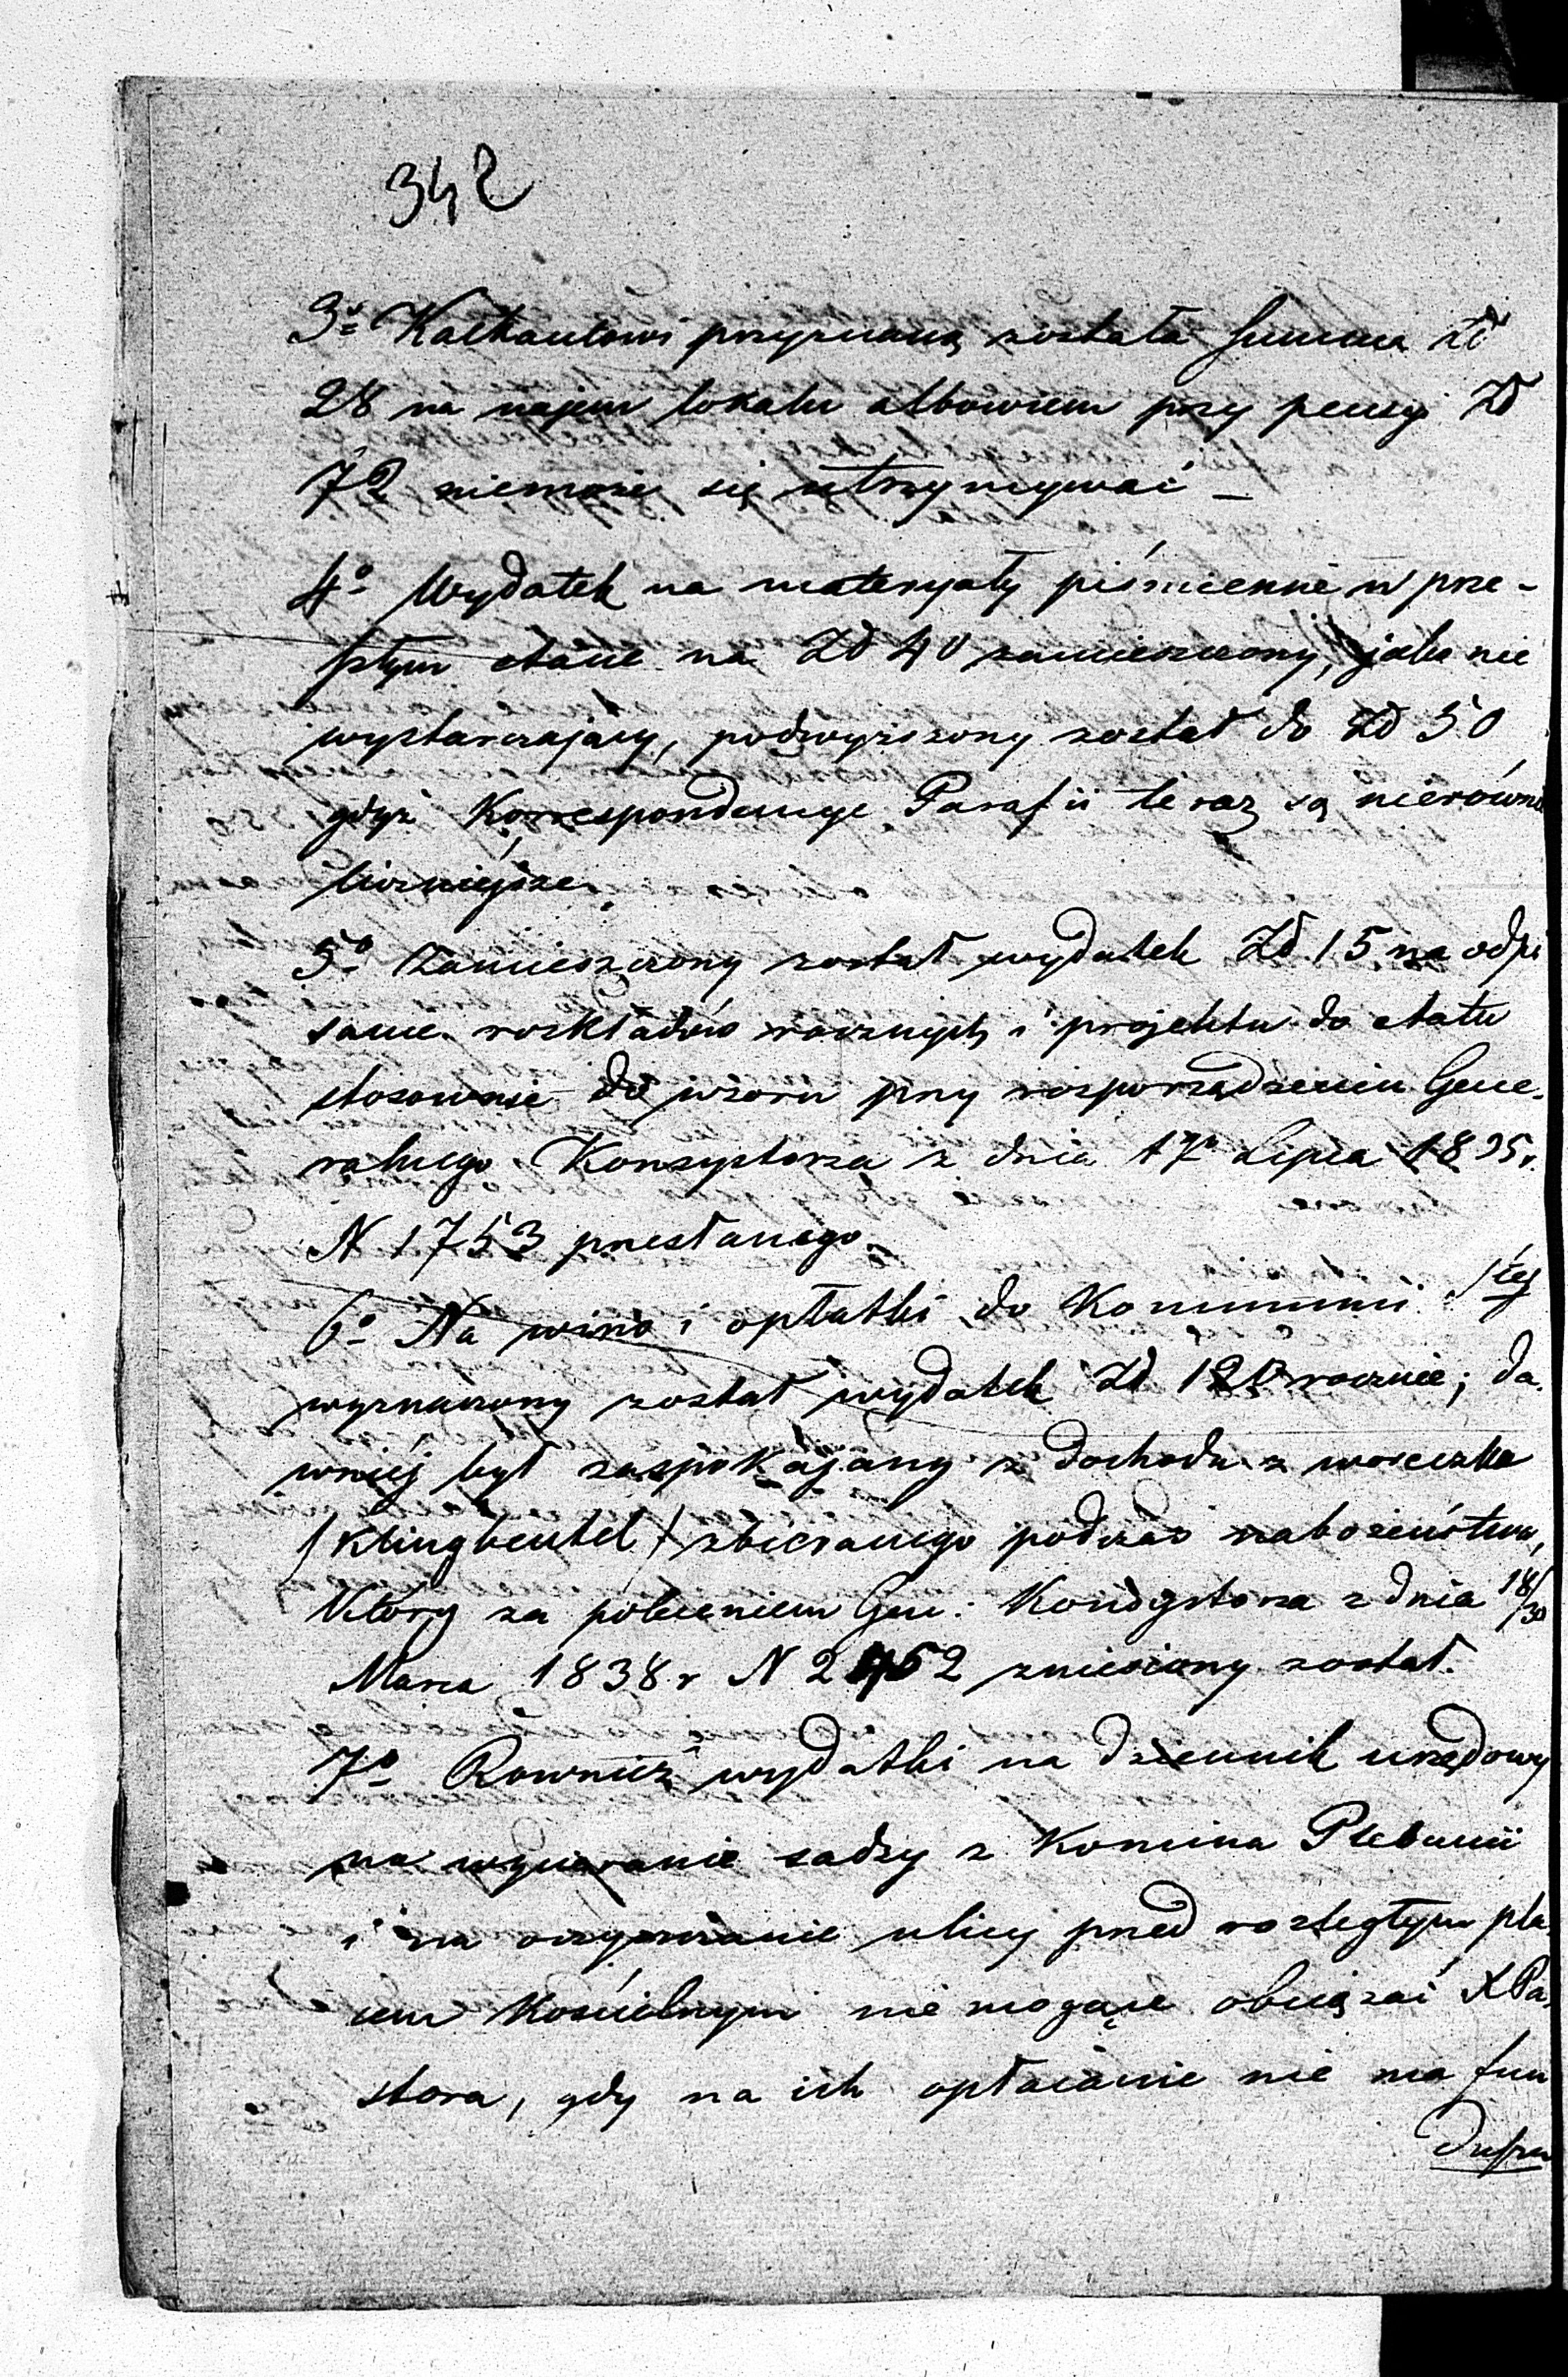 342
3o Kalkantowi przyznaną została Summa Zł
28 na najem lokalu albowiem przy pensyi Zł
72 niemoże się utrzymywać –
4o Wydatek na materyały piśmienne w prze-
szłym etacie na Zł 40 zamieszczony, jako nie
wystarczający, podwyższony został do Zł 50
gdyż Korrespondencye Parafii teraz są nierównie
liczniejsze.
5o Zamieszczony został wydatek Zł 15 na odpi
sanie rozkładów rocznych i projektu do etatu
stosownie do wzoru przy rozporządzeniu Gene-
ralnego Konsystorza z dnia 17 Lipca 1835 r.
N 1753 przesłanego.
6o Na wino i opłatki do Kommunii Stej
wyznaczony został wydatek Zł 120 rocznie; da-
wniéj był zaspokajany z dochodu z woreczka
/Klingbeutel/ zbieranego podczas nabożeństwa,
Który za poleceniem Gen: Konsystorza z dnia 18/30
Marca 1838 r N 2452 zniesiony został.
7o Rownież wydatki na dziennik urzędowy
na wycieranie sadzy z Komina Plebanii
i na oczyszczanie ulicy przed rozległym pla-
cem Kościelnym nie mogące obciążać X Pa-
stora, gdy na ich opłacanie nie ma fun
duszu